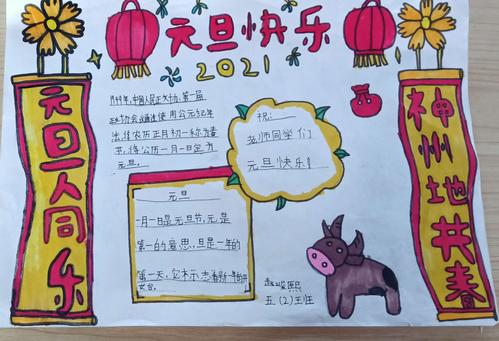 元旦快乐
2021
元旦人同乐
神州地共春
1949年,中国人民正大协,第一届
政协会议通过使用公元纪年
法,往农历正月初一称为春
节,将公历一月一日定为
元旦。
祝:
老师同学们
元旦快乐!
元旦
一月一日是元旦节,元是
第一的意思,旦是一年的
第一天,它标志着新一年的开
五.(2)王班